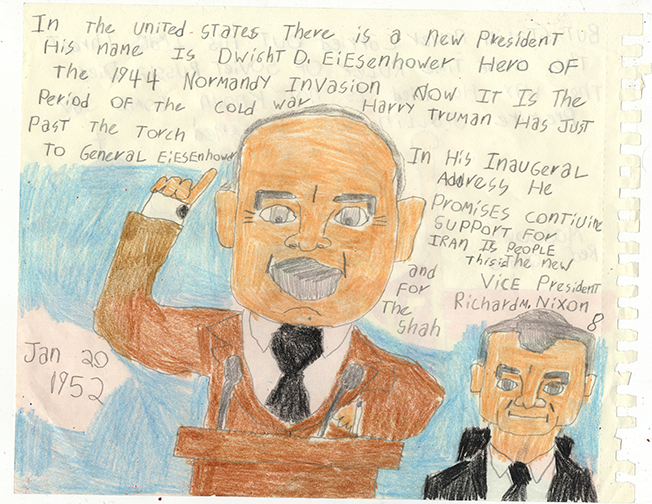 In the united-states There is a new President
His name Is Dwight D. EiEsenhower Hero OF
the 1944 Normandy Invasion Now It Is The
Period OF the Cold war Harry Truman Has Just
Past the Torch
To General EiEsenhower
In His Inaugeral
Address He
Promises Contiuine
Support For
IRAN Is People
and
For
The
Shah
This is the new
Vice President
Richard M. Nixon
8
Jan 20
1952